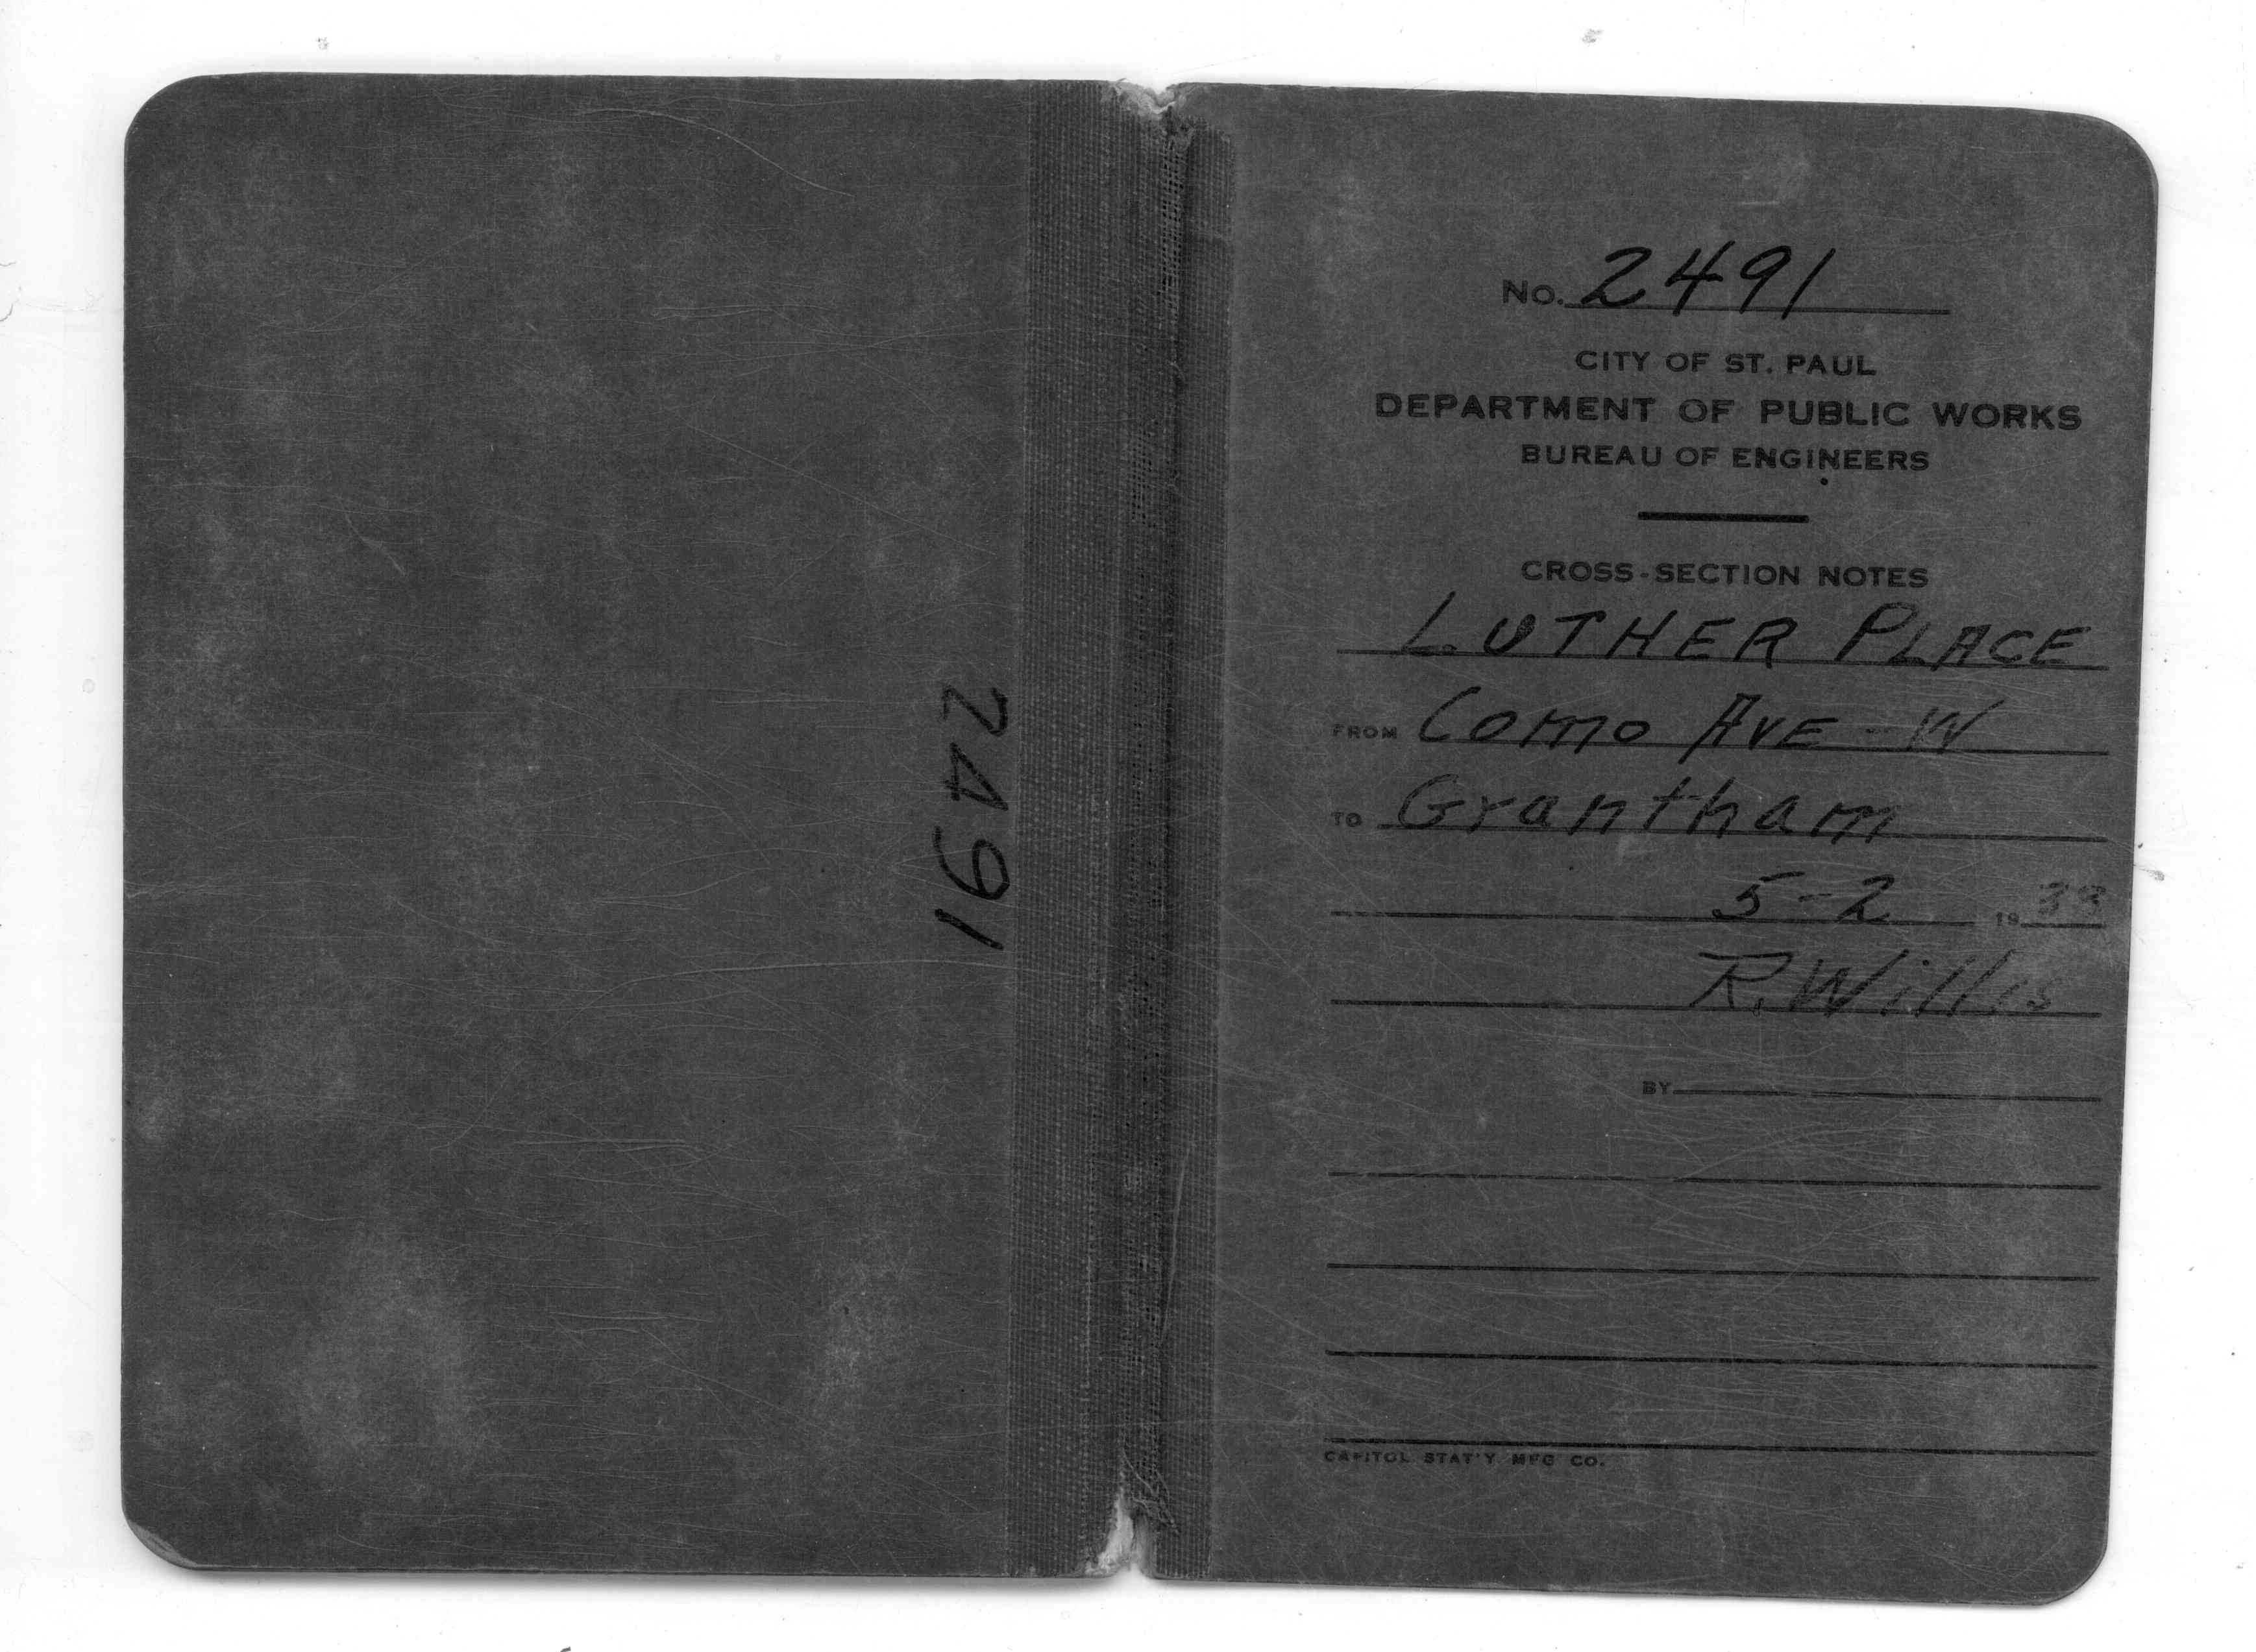 2491
No. 2491
CITY OF ST. PAUL
DEPARTMENT OF PUBLIC WORKS
BUREAU OF ENGINEERS
CROSS-SECTION NOTES
LUTHER PLACE
FROM Como AVE - W
TO Grantham
5-2 19
R. Willis
BY
CAPITOL STAT'Y MFG CO.